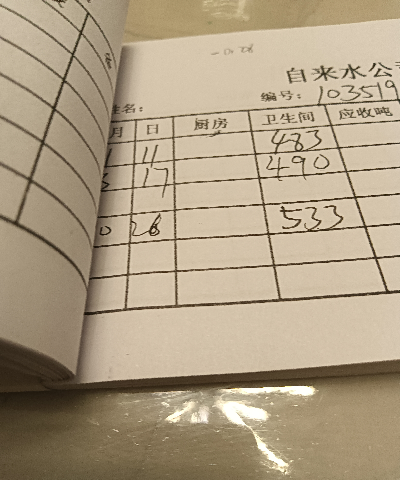 自来水公
编号: 103519
姓名:
月 日 厨房 卫生间 应收吨
11 483
17 490
26 533